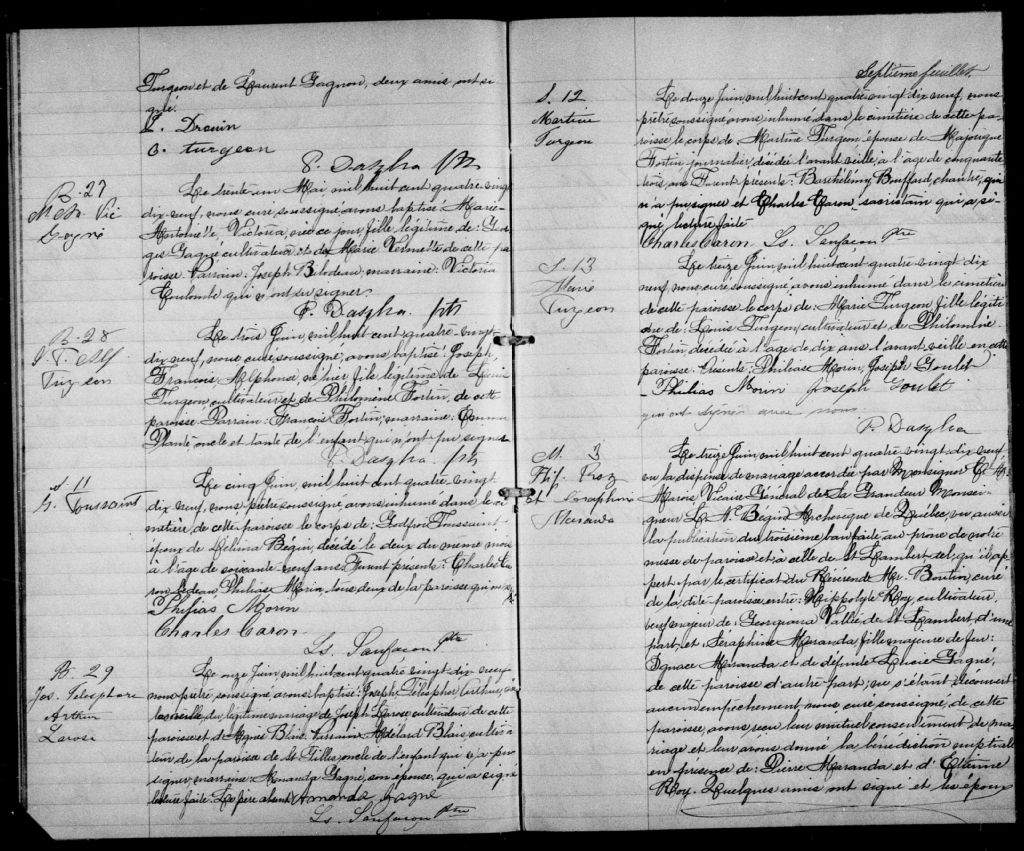 Turgeon et de Laurent Gagnon, deux amis, ont si-
gné.
L. Drouin
O. Turgeon
P. Daszlha ptr
B. 27
Le trente-un Mai mil huit cent quatre-vingt
dix neuf, nous curé soussigné avons baptisé Marie-
Victoria, née ce jour, fille légitime de Geor-
ges Gagné cultivateur et de Marie Vermette de cette pa-
roisse. Parrain: Joseph Bilodeau, marraine: Victoria
Coulombe qui n'ont su signer.
P. Daszlha ptr
B. 28
J. F. Alf
Turgeon
Le trois Juin, mil huit cent quatre-vingt
dix neuf, nous curé soussigné, avons baptisé Joseph,
François Alphonse, né hier fils légitime de Louis
Turgeon cultivateur et de Philomène Fortin, de cette
paroisse. Parrain: François Fortin, marraine: Emma
Planté oncle et tante de l'enfant qui n'ont pu signer
P. Daszlha ptr
S 11
G. Toussaint
Le cinq Juin, mil huit cent quatre vingt
dix neuf, nous prêtre soussigné avons inhumé dans le ci-
metière de cette paroisse le corps de: Godfroi Toussaint
époux de Bégin, décédé le deux du même mois
à l'âge de soixante-neuf ans. Furent présents: Charles Ca-
ron bedeau Philias Morin, tous deux de la paroisse qui ont
Philias Morin
Charles Caron
Ls. Sanfacon Ptre
B. 29
Jos. Télesphore
Arthur
Larose
Le onze Juin, mil huit cent quatre vingt dix neuf
nous prêtre soussigné avons baptisé: Joseph Télesphore Arthur, né
la veille, du légitime mariage de Joseph Larose cultivateur de cette
paroisse et d'Agnès Blais. Parrain Adélard Blais cultiva-
teur de la paroisse de St Gilles, oncle de l'enfant qui n'a pu
signer, marraine: Amanda Gagné, son épouse, qui a signé
lecture faite. Le père absent Amanda Gagné
Ls. Sanfacon Ptre
Septième feuillet.
S. 12
Martine
Turgeon
Le douze Juin, mil huit cent quatre vingt dix neuf, nous
prêtre soussigné, avons inhumé dans le cimetière de cette pa-
roisse le corps de: Martine Turgeon épouse de Majorique
Fortin journalier, décédée l'avant veille, à l'âge de cinquante
trois ans. Furent présents: Barthélémy Bouffard, chantre, qui
n'a pu signer et Charles Caron sacristain qui a si-
gné, lecture faite
Charles Caron Ls. Sanfacon Ptre
S. 13
Marie
Turgeon
Le treize Juin mil huit cent quatre-vingt dix
neuf, nous curé soussigné avons inhumé dans le cimetière
de cette paroisse le corps de: Marie Turgeon, fille légiti-
me de: Louis Turgeon, cultivateur et de Philomène
Fortin, décédée à l'âge de dix ans l'avant veille en cette
paroisse. Présents: Philiase Morin, Joseph Goulet
Philias Morin Joseph Goulet
qui ont signé avec nous.
P. Daszlha
M. 3
Hip. Roy
et Séraphine
Maranda
Le treize Juin mil huit cent quatre vingt dix neuf,
vu la dispense de mariage accordée par Monseigneur C. A.
Marois Vicaire Général de Sa Grandeur Monsei-
gneur L. N. Bégin, Archevêque de Québec, vu aussi
la publication du troisième ban faite au prône de notre
messe de paroisse et à celle de St Lambert tel qu'il ap-
pert par le certificat du Révérend Mr. Boutin, curé
de la dite paroisse, entre: Hippolyte Roy, cultivateur,
veuf majeur de: Georgiana Vallée de St Lambert, d'une
part, et Séraphine Maranda fille majeure de feu:
Ignace Maranda et de défunte Lucie Gagné,
de cette paroisse d'autre part; ne s'étant découvert
aucun empêchement, nous curé soussigné, de cette
paroisse, avons reçu leur mutuel consentement de ma-
riage et leur avons donné la bénédiction nuptiale
en présence de: Pierre Maranda et d'Etienne
Roy. Quelques amis ont signé et les époux